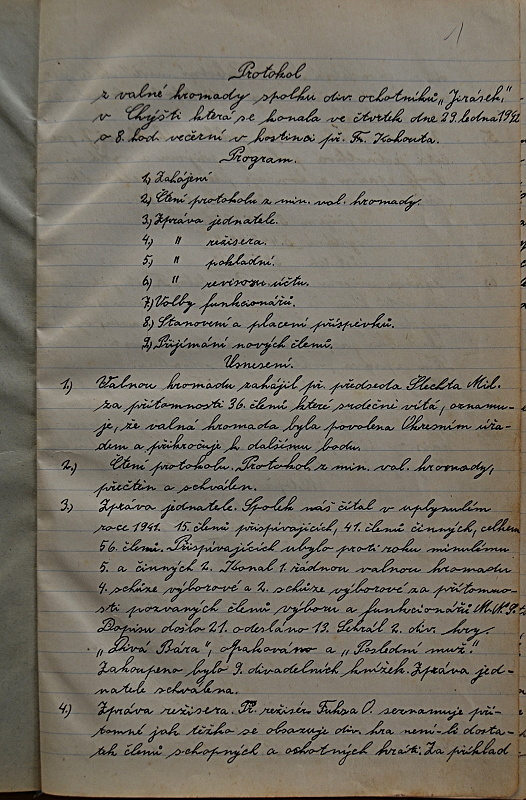 1
Protokol
z valné hromady spolku div. ochotníků „Jirásek"
v Chýšti která se konala ve čtvrtek dne 29. ledna 1942
o 8. hod. večerní v hostinci př. Fr. Kohouta.
Program.
1.) Zahájení
2.) Čtení protokolu z min. val. hromady.
3.) Zpráva jednatele.
4.) " režisera.
5.) " pokladní.
6.) " revisorů účtu.
7.) Volby funkcionářů.
8.) Stanovení a placení příspěvků.
9.) Přijímání nových členů.
Usnesení.
1.) Valnou hromadu zahájil př. předseda Šlechta Mil.
za přítomnosti 36. členů které srdečně vítá, oznamu-
je, že valná hromada byla povolena Okresním úřa-
dem a přikročuje k dalšímu bodu.
2.) Čtení protokolu. Protokol z min. val. hromady,
přečtěn a schválen.
3.) Zpráva jednatele. Spolek náš čítal v uplynulém
roce 1941. 15. členů přispívajících, 41. členů činných, celkem
56. členů. Přispívajících ubylo proti roku minulému
5. a činných 2. Konal 1. řádnou valnou hromadu
4. schůze výborové a 2. schůze výborové za přítomno-
sti pozvaných členů výboru a funkcionářů M.K.P.
Dopisů došlo 21. odesláno 13. Sehrál 2. div. hry.
„Divá Bára", opakováno a „Poslední muž."
Zakoupeno bylo 9. divadelních knížek. Zpráva jed-
natele schválena.
4.) Zpráva režisera. Př. režisér Fuksa O. seznamuje pří-
tomné jak těžko se obsazuje div. hra není-li dosta-
tek členů schopných a ochotných hráti. Za příklad